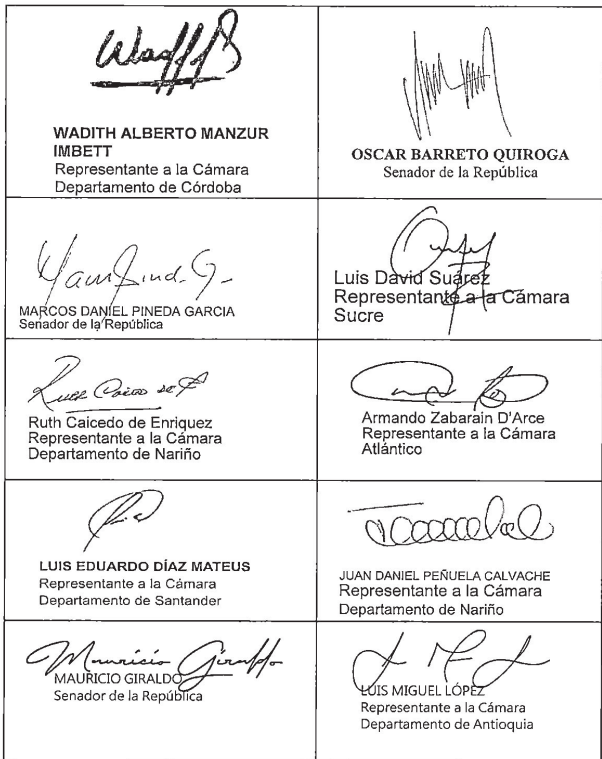 WADITH ALBERTO MANZUR
IMBETT
Representante a la Cámara
Departamento de Córdoba
OSCAR BARRETO QUIROGA
Senador de la República
MARCOS DANIEL PINEDA GARCIA
Senador de la República
Luis David Suárez
Representante a la Cámara
Sucre
Ruth Caicedo de E
Ruth Caicedo de Enriquez
Representante a la Cámara
Departamento de Nariño
Armando Zabarain D'Arce
Representante a la Cámara
Atlántico
LUIS EDUARDO DÍAZ MATEUS
Representante a la Cámara
Departamento de Santander
JUAN DANIEL PEÑUELA CALVACHE
Representante a la Cámara
Departamento de Nariño
Mauricio Giraldo
MAURICIO GIRALDO
Senador de la República
LUIS MIGUEL LÓPEZ
Representante a la Cámara
Departamento de Antioquia